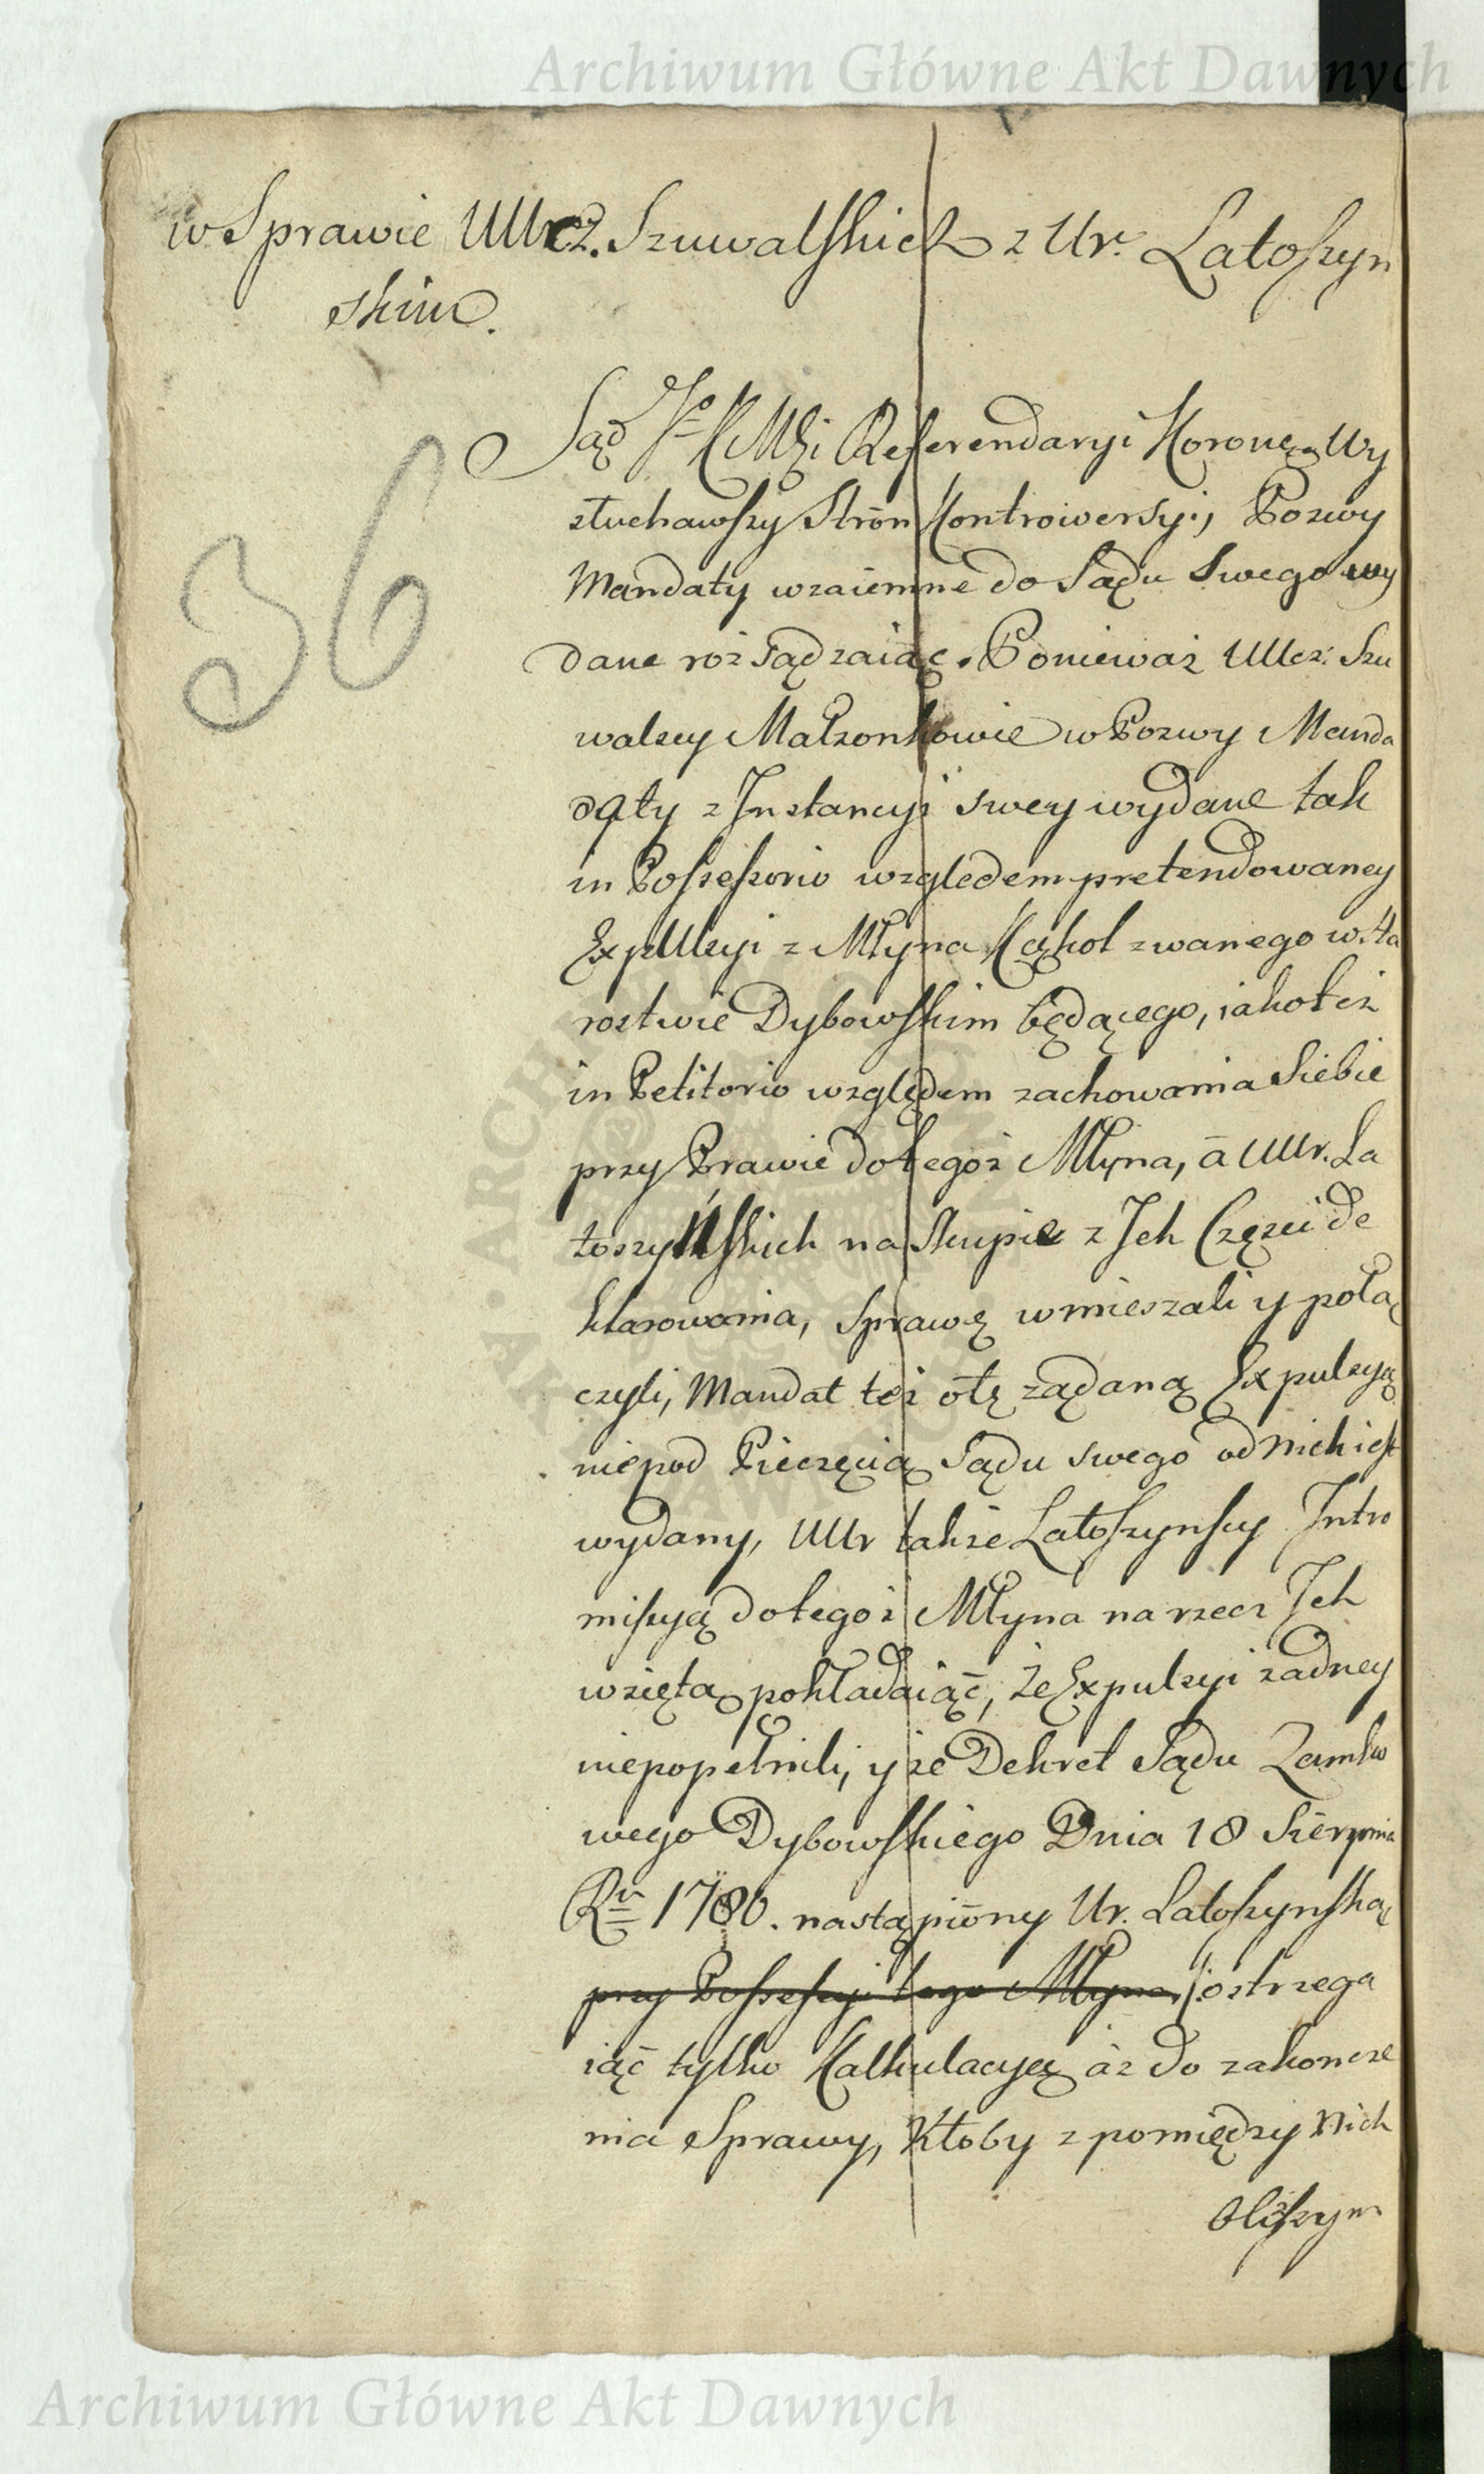 Archiwum Główne Akt Dawnych
w Sprawie UUrcz. Szuwalskich z Ur. Latoszyn
skim.
36
Sąd Jo K Mści Referendaryi Koronney Wy
słuchawszy Strōn Kontrowersyi, Pozwy
Mandaty wzaiemne do Sądu Swego wy
dane rozsądzaiąc. Ponieważ UUcz: Szu
walscy Małzonkowie w Pozwy Manda
daty z Jnstancyi swey wydane tak
in Possessorio względem pretendowaney
Expulsyi z Młyna Kąkol zwanego w Sta
rostwie Dybowskim będącego, iakotez
in Petitorio względem zachowania Siebie
przy Prawie do tegoz Młyna, ā UUr. La
toszyńskich na Skupie z Jch Częsci de
klarowania, Sprawę wmieszali y połą
czyli, Mandat tez o tę ządaną Expulsyą
nie pod Pieczęcią Sądu swego od Nich iest
wydany, UUr takze Latoszynscy Intro
missyą do tegoz Młyna na rzecz Jch
wziętą pokładaiąć, że Expulsyi zadney
niepopełnili, y ze Dekret Sądu Zamko
wego Dybowskiego Dnia 18 Sierpnia
Ru 1780. nastąpiōny Ur. Latoszynską
przy Possessyi tego Młyna, ostrzega
iąć tylko Kalkulacyę āz do zakoncze
nia Sprawy, Ktoby z pomiędzy Nich
bliższym
Archiwum Główne Akt Dawnych